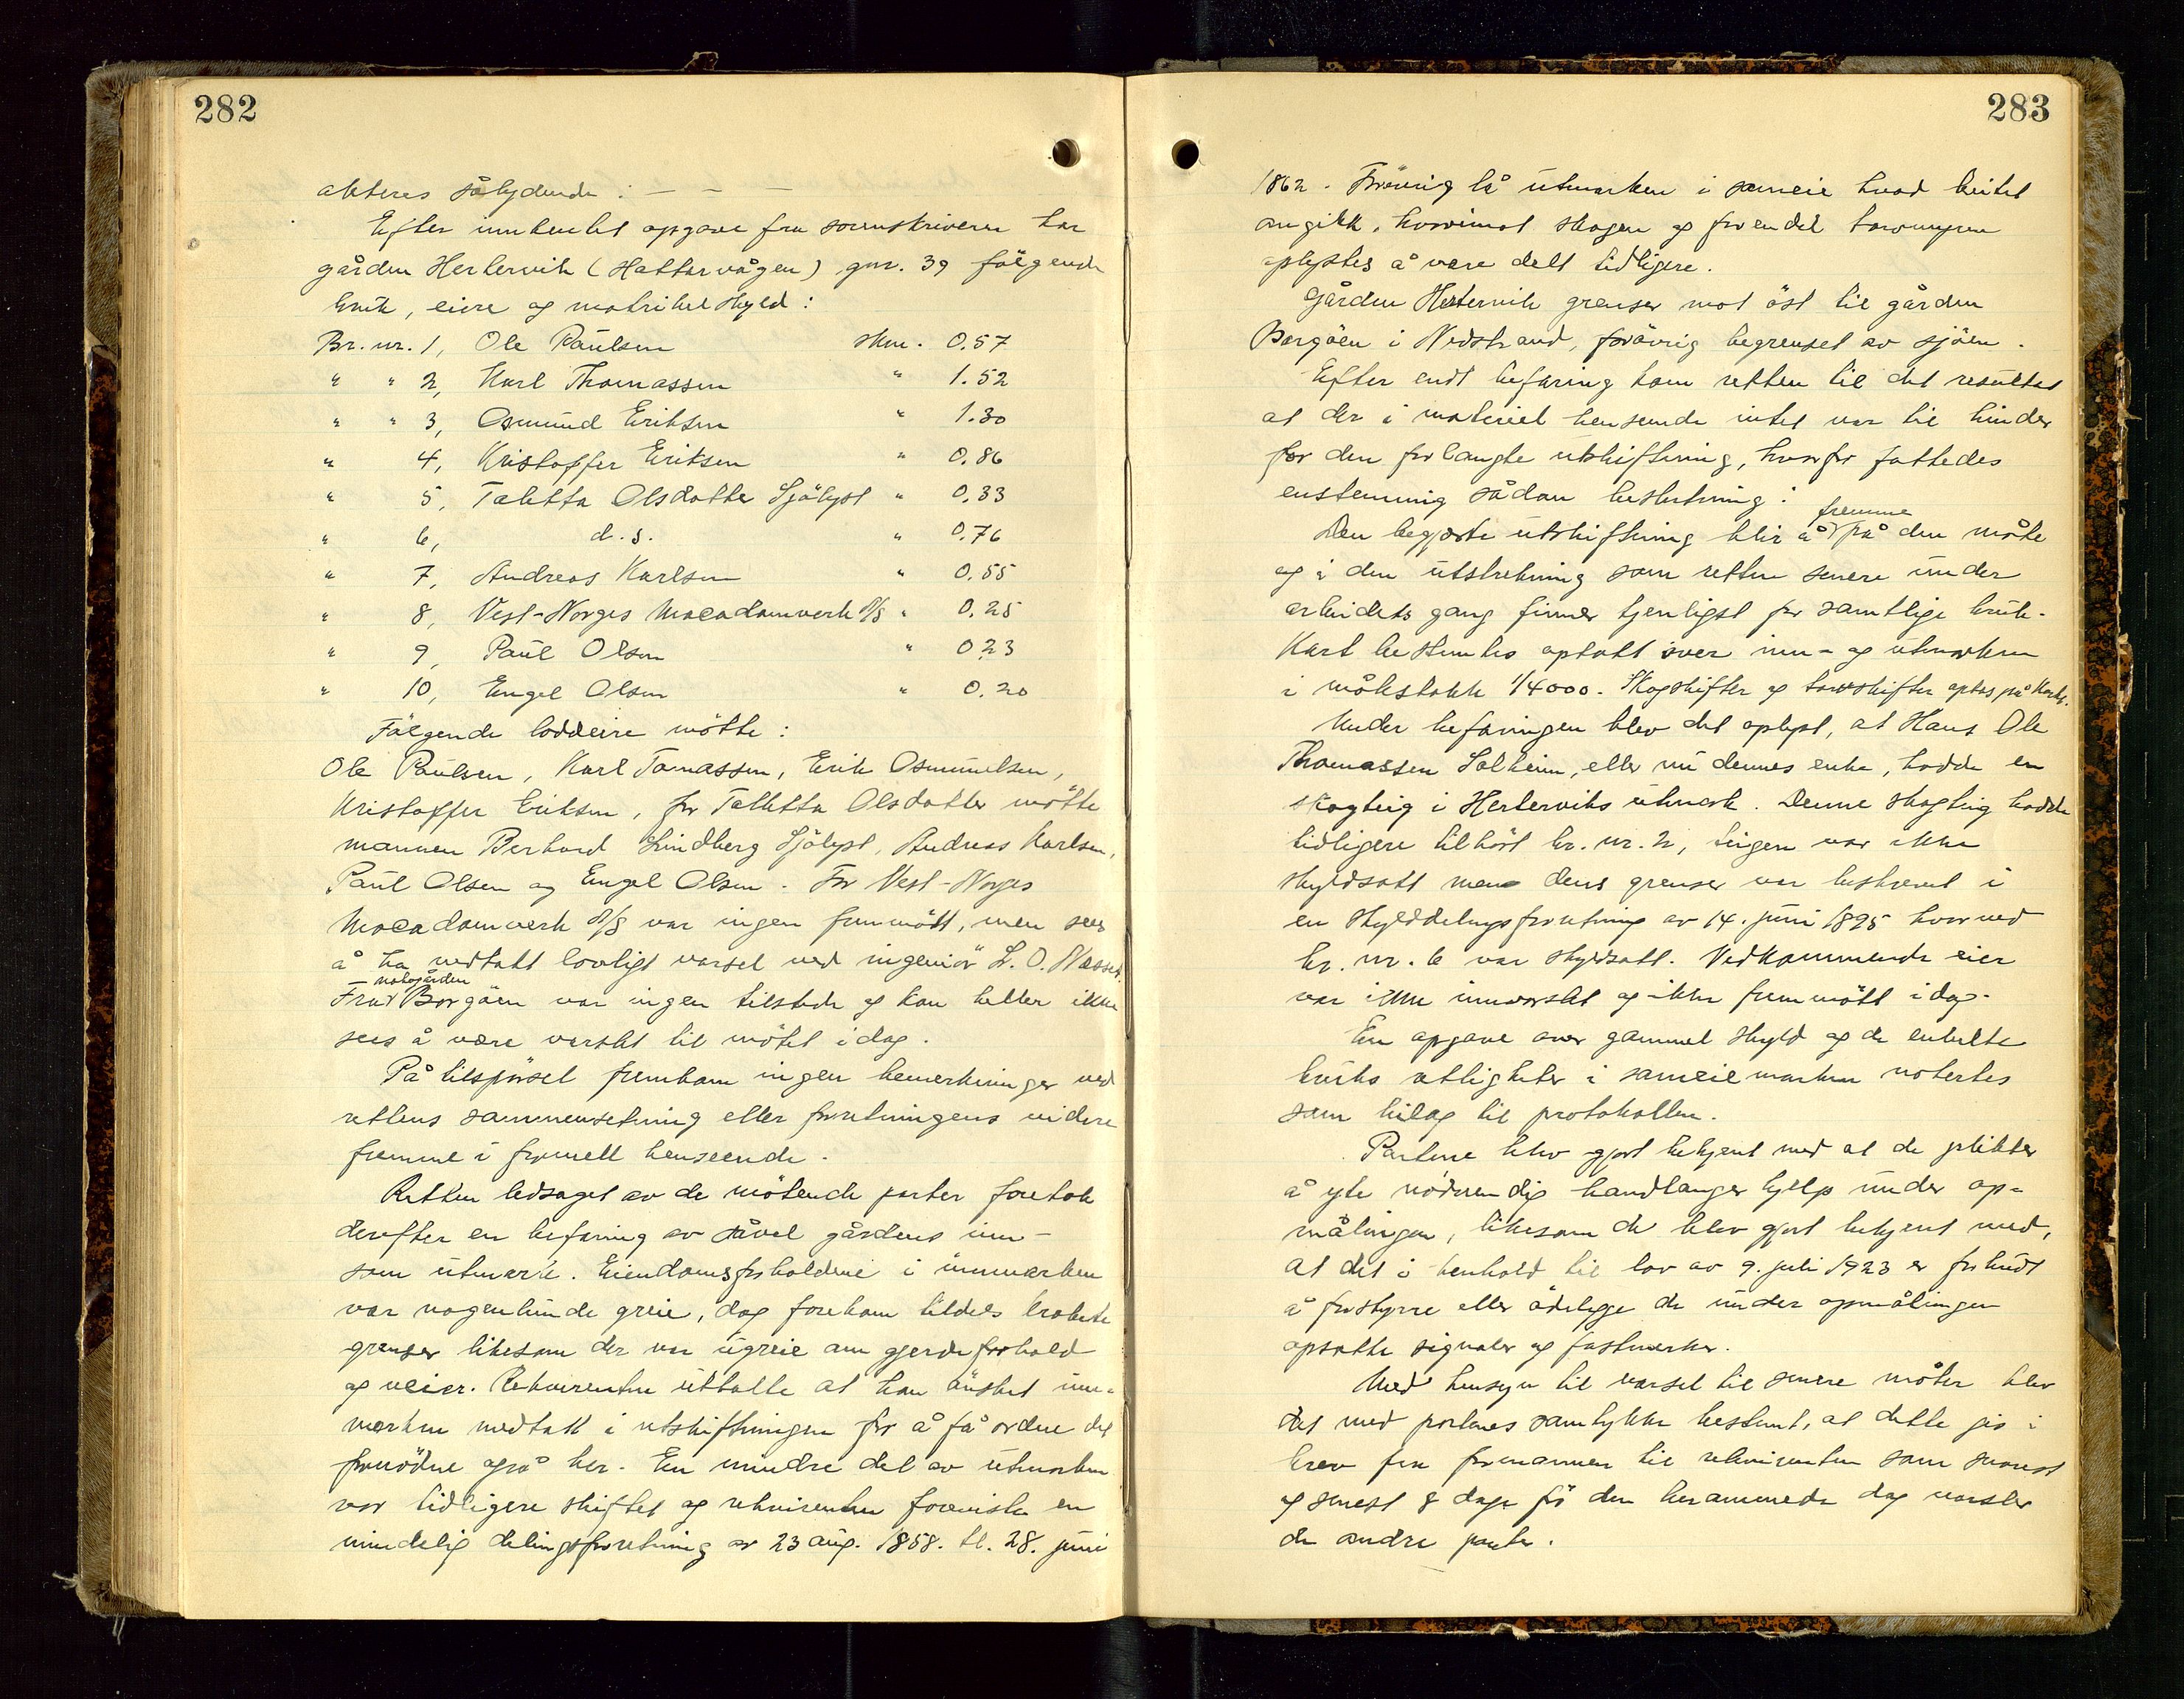 282
akteres sålydende : — — —
Efter innhentet opgave fra sorenskriveren har
gården Hertervik (Hattarvågen) gnr. 39 følgende
bruk, eiere og matrikelskyld :
Br. nr. 1, Ole Paulsen skm. 0.57
" " 2, Karl Thomassen " 1.52
" " 3, Osmund Eriksen " 1.30
" 4, Kristoffer Eriksen " 0.86
" 5, Taletta Olsdatter Sjølyst " 0.33
" 6, d. s. " 0.76
" 7, Andreas Karlsen " 0.55
" 8, Vest-Norges Macadamverk A/S " 0.25
" 9, Paul Olsen " 0.23
" 10, Engel Olsen " 0.20
Følgende loddeiere møtte :
Ole Paulsen, Karl Tomassen, Erik Osmundsen,
Kristoffer Eriksen, for Taletta Olsdatter møtte
mannen Berhard Lindberg Sjølyst, Andreas Karlsen,
Paul Olsen og Engel Olsen. For Vest-Norges
Macadamverk A/S var ingen fremmøtt, men sees
å ha vedtatt lovligt varsel ved ingeniør L. O.
nabogården
Fra Borgøen var ingen tilstede og kan heller ikke
sees å være varslet til møtet idag.
På tilspørsel fremkom ingen bemerkninger ved
rettens sammensetning eller forretningens videre
fremme i formell henseende.
Retten ledsaget av de møtende parter foretok
derefter en befaring av såvel gårdens inn-
som utmark. Eiendomsforholdene i innmarken
var nogenlunde greie, dog forekom tildels krokete
grenser likesom der var ugreie om gjerdeforhold
og veier. Rekvirenten uttalte at han ønsket inn-
marken medtatt i utskiftningen for å få ordne det
fornødne også her. En mindre del av utmarken
var tidligere skiftet og rekvirenten foreviste en
mindelig delingsforretning av 23 aug. 1858. tl. 28. juni
283
1862. Forøvrig lå utmarken i sameie hvad beitet
angikk, hvorimot skogen og for endel torvmyren
oplystes å være delt tidligere.
Gården Hertervik grenser mot øst til gården
Borgøen i Nedstrand, forøvrig begrenset av sjøen.
Efter endt befaring kom retten til det resultat
at der i materiel henseende intet var til hinder
for den forlangte utskiftning, hvorfor fattedes
enstemmig sådan beslutning :
fremme
Den begjærte utskiftning blir å på den måte
og i den utstrekning som retten senere under
arbeidets gang finner tjenligst for samtlige bruk.
Kart bestemtes optatt over inn- og utmarken
i målestokk 1/4000. Skogskifter og torvskifter optas på kartet.
Under befaringen blev det oplyst, at Hans Ole
Thomassen Solheim, eller nu dennes enke, hadde en
skogteig i Herterviks utmark. Denne skogteig hadde
tidligere tilhørt br. nr. 2, teigen var ikke
skyldsatt men dens grenser var beskrevet i
en skylddelingsforretning av 14. juni 1895 hvorved
br. nr. 6 var skyldsatt. Vedkommende eier
var ikke innvarslet og ikke fremmøtt idag.
En opgave over gammel skyld og de enkelte
bruks rettigheter i sameiemarken notertes
som bilag til protokollen.
Partene blev gjort bekjent med at de plikter
å yte nødvendig handlangerhjelp under op-
målingen, likesom de blev gjort bekjent med,
at det i henhold til lov av 9. juli 1923 er forbudt
å forstyrre eller ødelegge de under opmålingen
opsatte signaler og fastmerker.
Med hensyn til varsel til senere møter blev
det med partenes samtykke bestemt, at dette gis i
brev fra formannen til rekvirenten som snarest
og senest 8 dage før den berammede dag varsler
de andre parter.